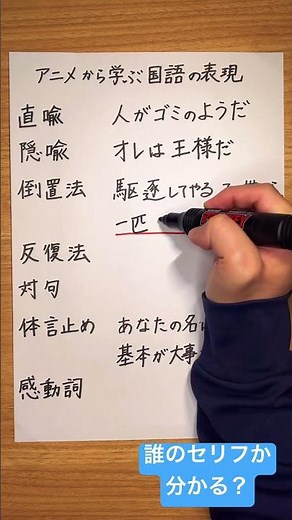 アニメから学ぶ国語の表現
直喩 人がゴミのようだ
隠喩 オレは王様だ
倒置法 駆逐してやる
一匹
反復法
対句
体言止め あなたの名
基本が大事
感動詞
誰のセリフか
分かる？